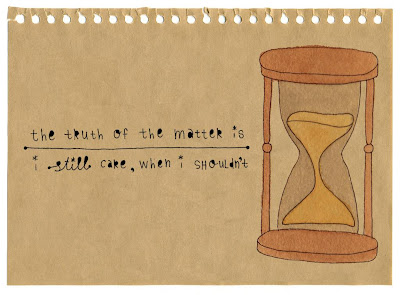 the truth of the matter is
i still care, when i shouldn't